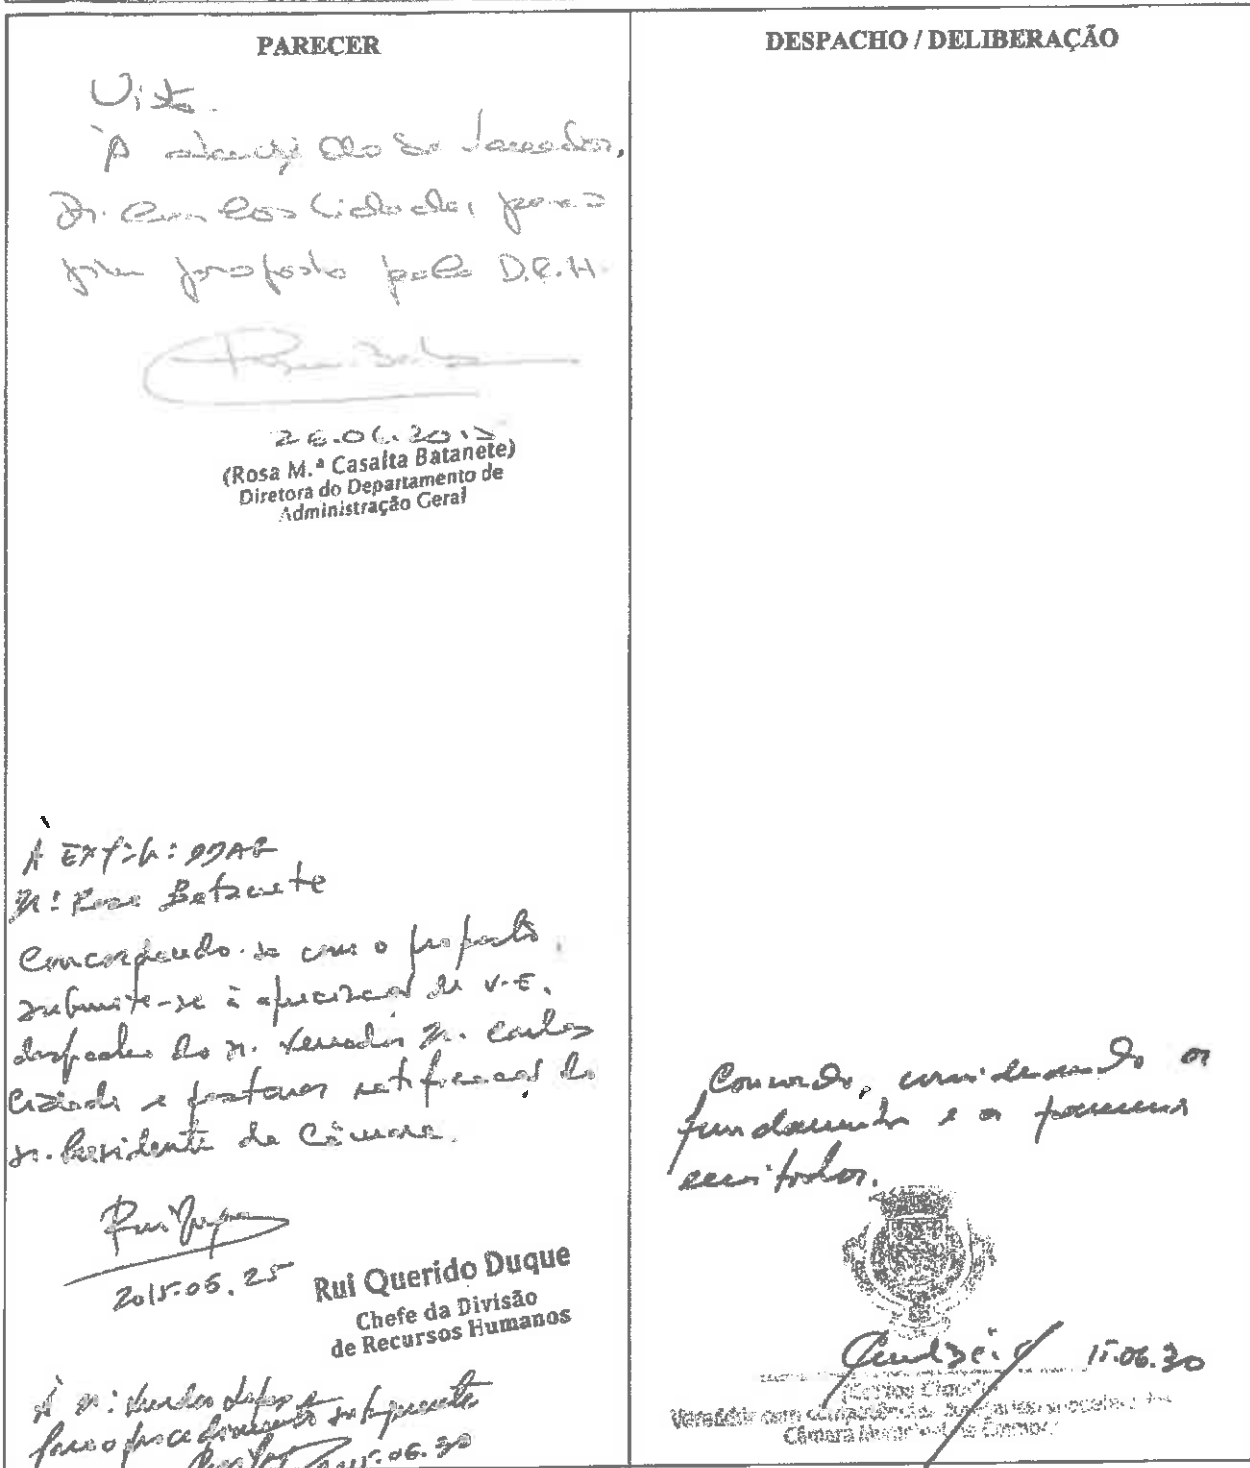 PARECER
Visto.
À atenção do Sr. Vereador,
Dr. Carlos Cidade, para o
fim proposto pelo D.R.H.
26.06.2015
(Rosa M.ª Casalta Batanete)
Diretora do Departamento de
Administração Geral
À
Rosa Batanete
Concordando-se com o proposto,
submete-se à apreciação de V.E.
despacho do Sr. Vereador Dr. Carlos
Cidade e posterior ratificação do
Sr. Presidente da Câmara.
2015.05.25
Rui Querido Duque
Chefe da Divisão
de Recursos Humanos
para o procedimento subsequente
06.30
DESPACHO / DELIBERAÇÃO
Concordo, considerando os
fundamentos e os pareceres
emitidos.
15.06.30
Vereador com
Câmara